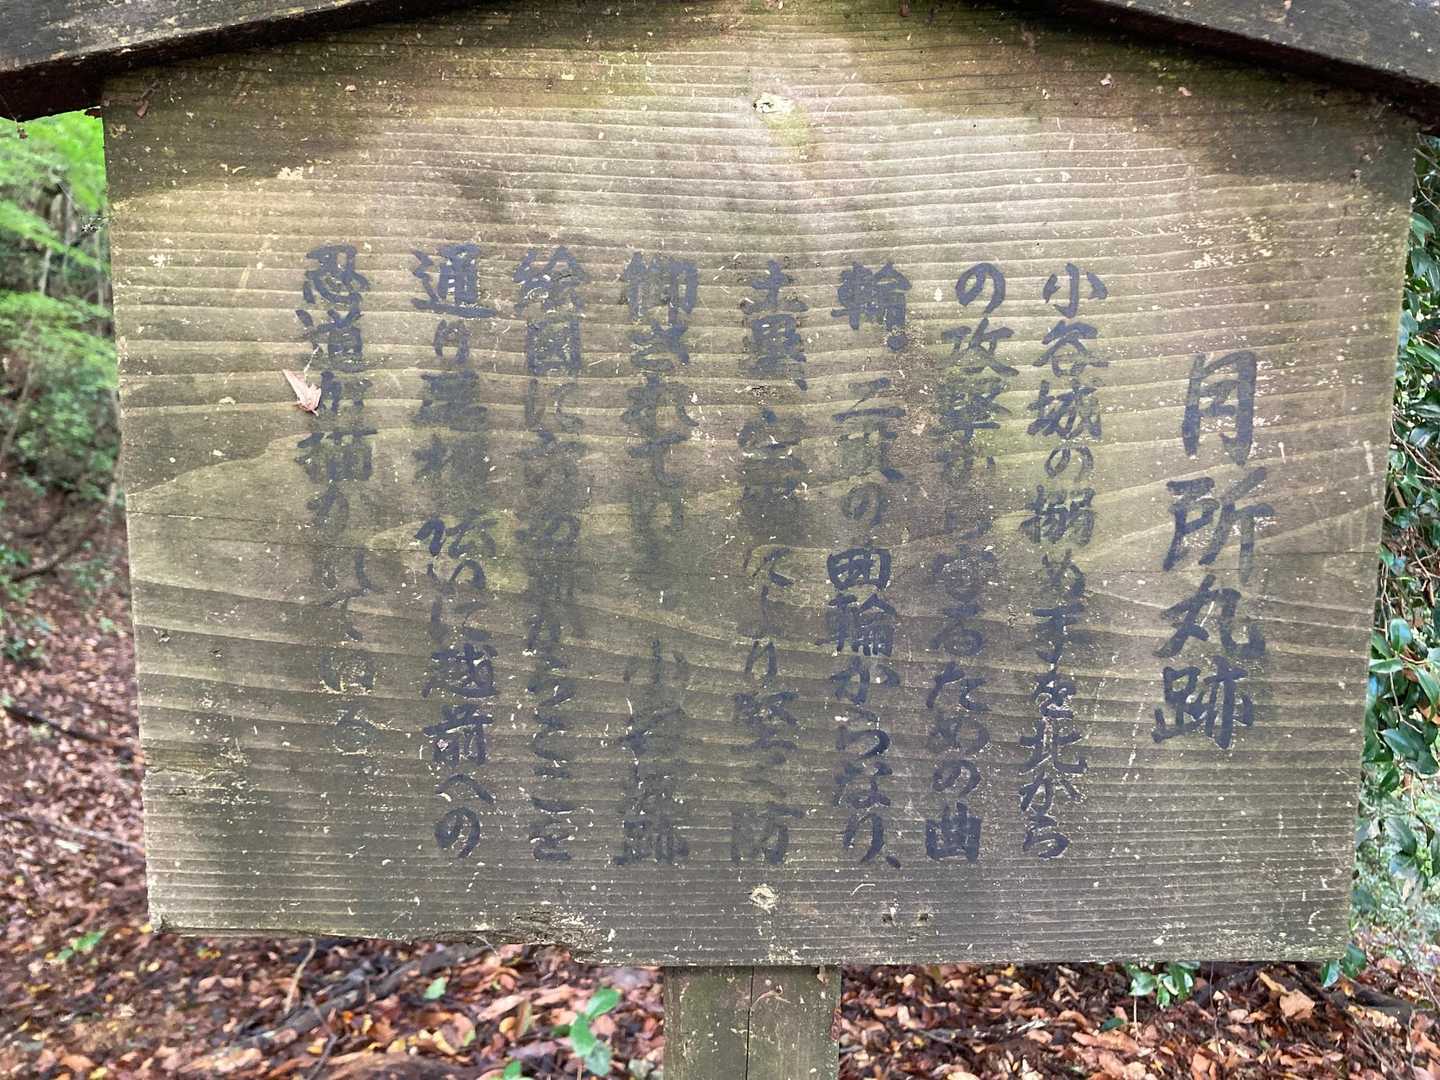 月所丸跡
小谷城の搦め手を北から
の攻撃から守るための曲
輪。二重の曲輪からなり、
土塁、により堅く防
御されている。小谷城跡
絵図には からここを
通り尾根伝いに越前への
忍道が描かれている。